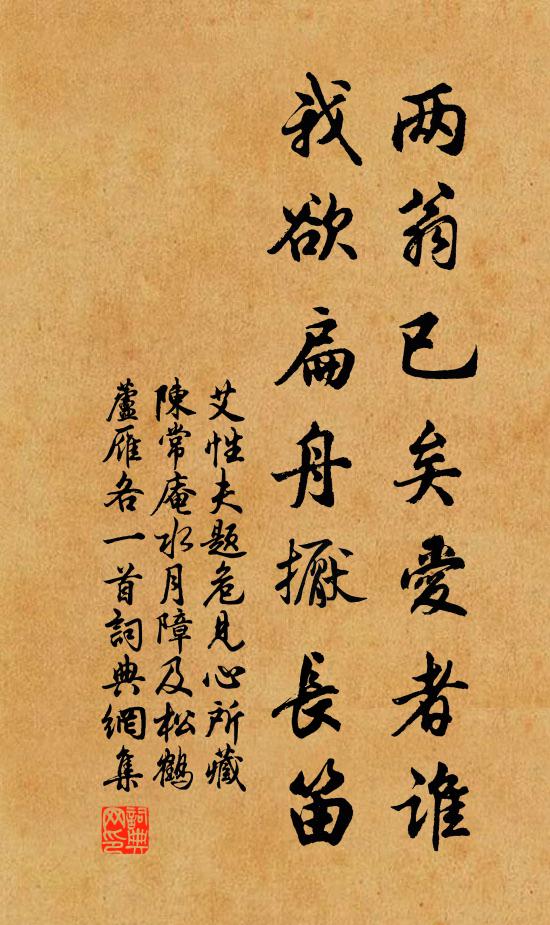 两翁已矣愛者誰
我欲扁舟擫長笛
艾性夫題危見心所藏
陳常庵水月障及松鶴
蘆雁各一首詞典網集
詞典网印